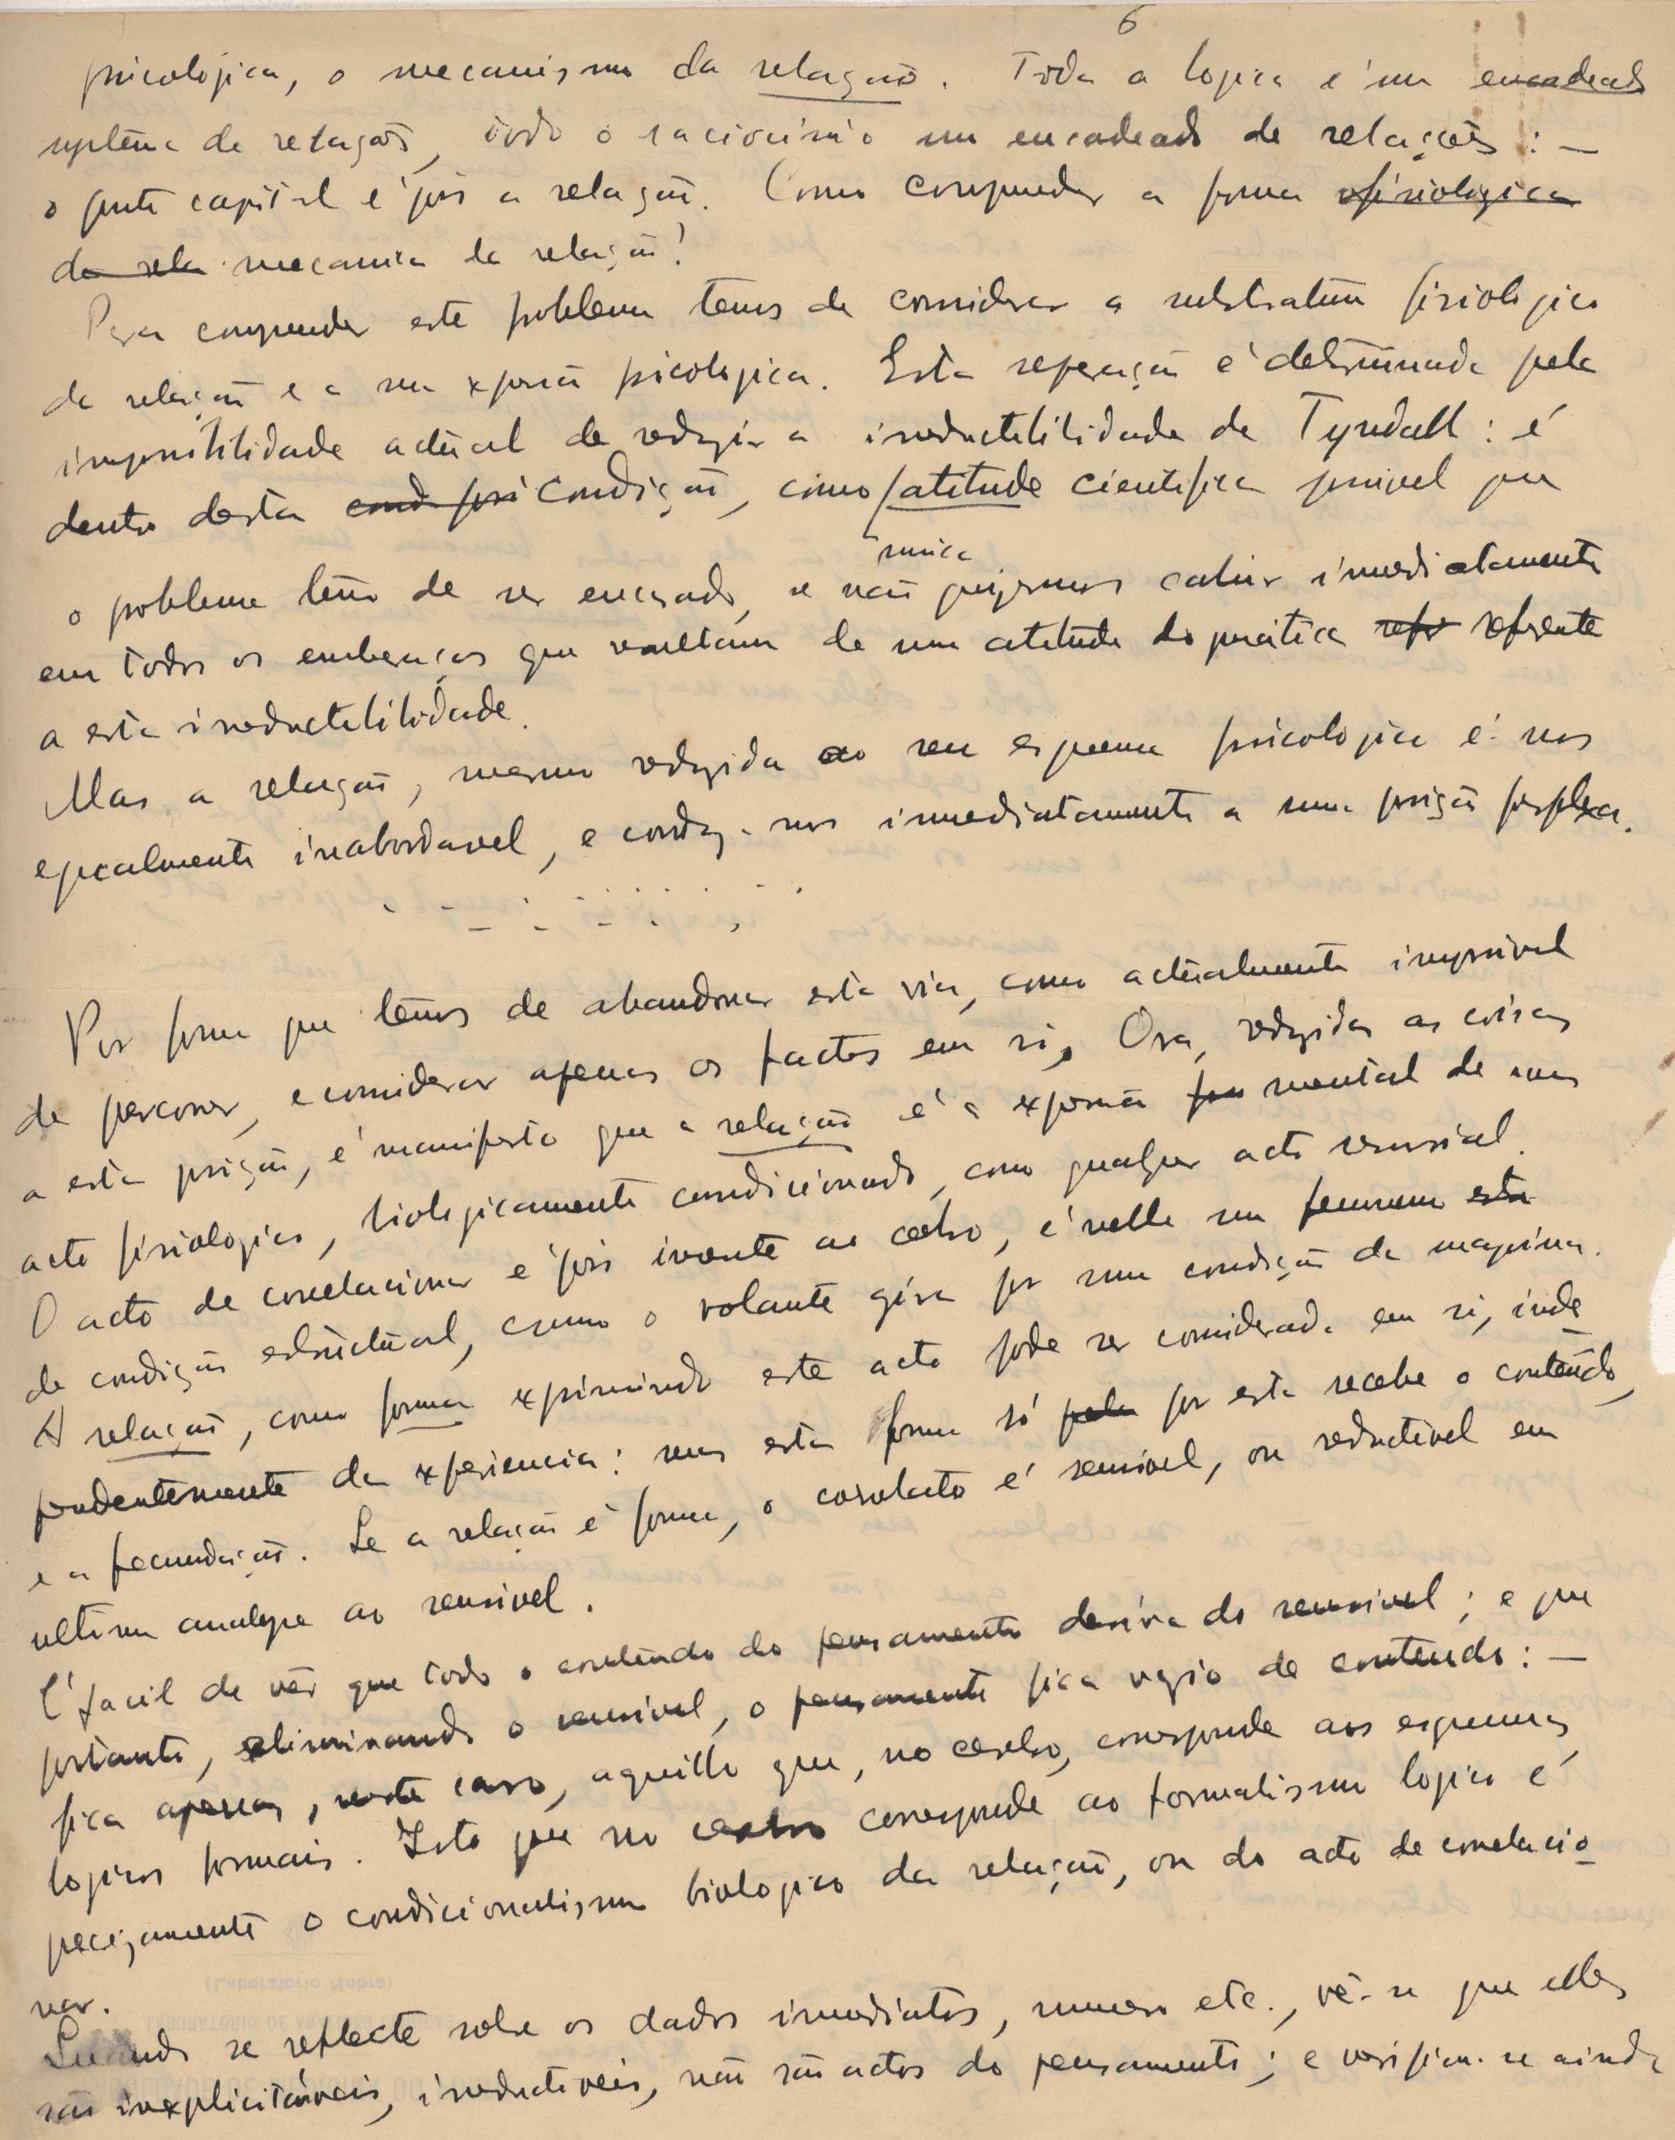 6
psicologica, o mecanismo da relação. Toda a logica é um encadeado
systema de relações, todo o raciocinio um encadeado de relações : —
o ponto capital é pois a relação. Como comprender a forma ofisiologica
da rela mecanica da relação?
Para comprender este problema temos de considerar o substratum fisiologico
da relação e a sua expressão psicologica. Esta separação é determinada pela
impossibilidade actual de reduzir a irreductibilidade de Tyndall : é
dentro desta cond posi condição, como atitude cientifica possivel que
unica
o problema tem de ser encarado, se não quizermos cahir immediatamente
em todos os embaraços que resultam de uma atitude do pratica refr referente
a esta irreductibilidade.
Mas a relação, mesmo reduzida ao seu esquema psicologico é-nos
egualmente inabordavel, e conduz-nos immediatamente a uma posição perplexa.
Por forma que temos de abandonar esta via, como actualmente impossivel
de percorrer, e considerar apenas os factos em si. Ora, reduzidas as coisas
a esta posição, é manifesto que a relação é a expressão mental de um
acto fisiologico, biologicamente condicionado, como qualquer acto sensorial.
O acto de correlacionar é pois inerente ao cerebro, é nelle um fenomeno esta
de condição estructural, como o volante gira por uma condição da maquina.
A relação, como forma exprimindo este acto pode ser considerada em si, inde
pendentemente da experiencia : mas esta forma só pela por esta recebe o conteúdo,
e a fecundação. Se a relação é forma, o correlato é sensivel, ou reductivel em
ultima analyse ao sensivel.
É facil de vêr que todo o conteúdo do pensamento deriva do sensivel ; e que
portanto, eliminando o sensivel, o pensamento fica vazio de conteudo : —
fica apenas, neste caso, aquillo que, no cerebro, corresponde aos esquemas
logicos formais. Isto que no cerebro corresponde ao formalismo logico é
precizamente o condicionalismo biologico da relação, ou do acto de correlacio
nar.
Quando se reflecte sobre os dados immediatos, numero etc., vê-se que elles
são inexplicitáveis, irreductiveis, não são actos do pensamento ; e verifica-se ainda